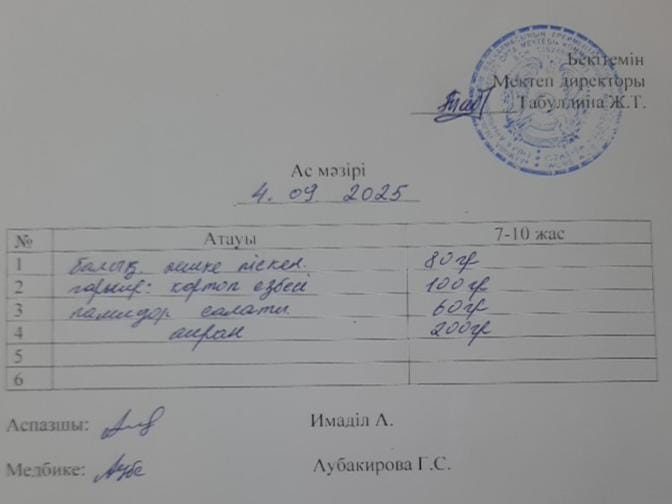 Бекітемін
Мектеп директоры
Табулдина Ж.Т.
Ас мәзірі
4. 09 2025
№ Атауы 7-10 жас
1 балық пешке піскен. 80гр
2 гарнир: картоп езбесі 100гр
3 памидор салаты 60гр
4 айран 200гр
5
6
Аспазшы: Имаділ А.
Медбике: Аубакирова Г.С.